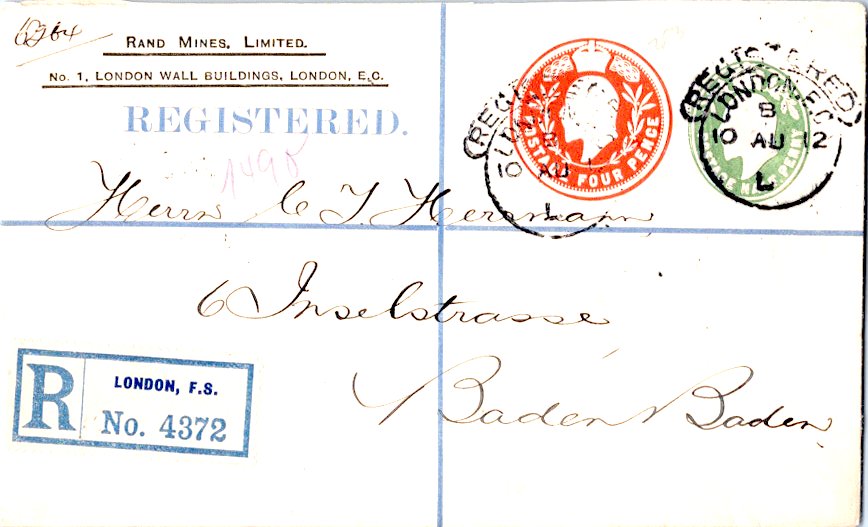 RAND MINES, LIMITED.
No. 1, LONDON WALL BUILDINGS, LONDON, E.C.
REGISTERED.
1490
Herrn C J Herrmann
6 Inselstrasse
Baden Baden
POSTAGE FOUR PENCE
REGISTERED
LONDON
10 AU
L
POSTAGE HALF PENNY
REGISTERED
LONDON. E.C.
B
10 AU 12
L
R
LONDON, F.S.
No. 4372